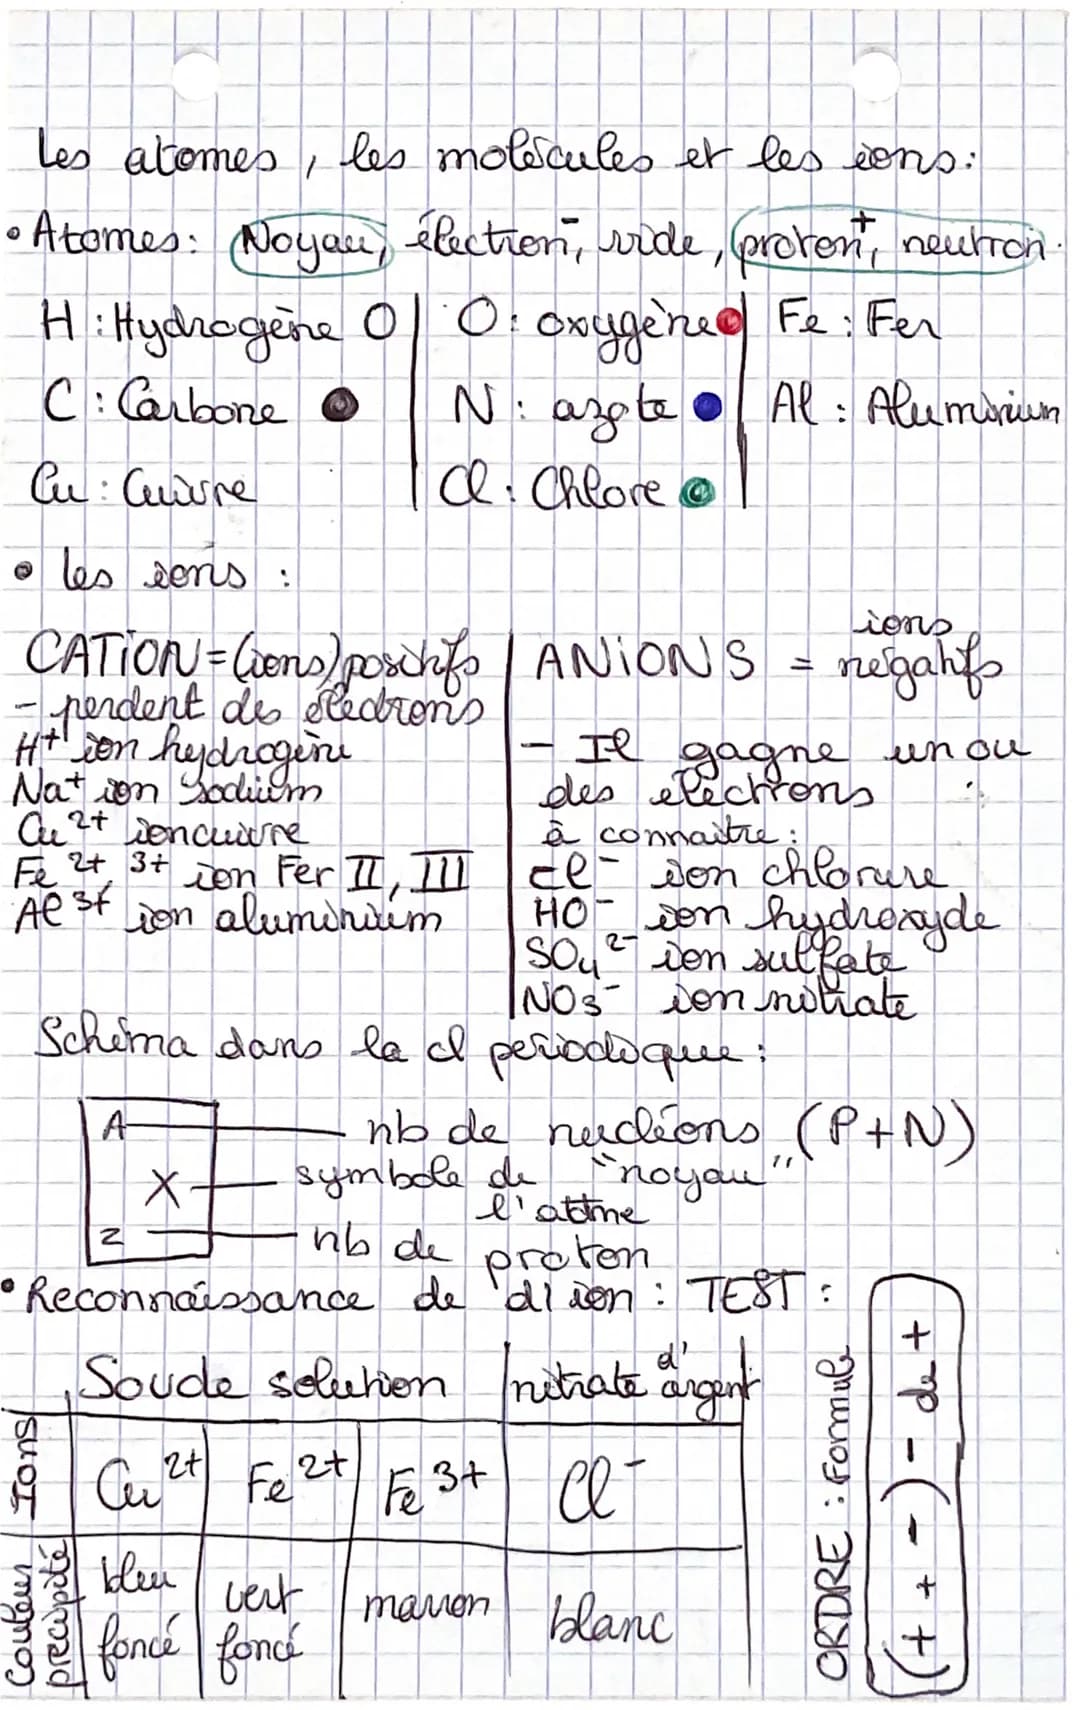 Les atomes, les molécules et les ions:
• Atomes: Noyau, électron⁻, vide, proton⁺, neutron.
H : Hydrogène O | O : oxygène | Fe : Fer
C : Carbone | N : azote | Al : Aluminium
Cu : Cuivre | Cl : Chlore
• les ions :
CATION = (ions) positifs
- perdent des électrons
H⁺ ion hydrogène
Na⁺ ion sodium
Cu²⁺ ion cuivre
Fe²⁺, ³⁺ ion Fer II, III
Al³⁺ ion aluminium
ANIONS = ions négatifs
- Il gagne un ou
des électrons
à connaitre :
Cl⁻ ion chlorure
HO⁻ ion hydroxyde
SO₄²⁻ ion sulfate
NO₃⁻ ion nitrate
Schéma dans la cl periodique :
A nb de nucléons (P+N)
X symbole de "noyau"
l'atome
Z nb de proton
• Reconnaissance de d'ion : TEST :
Soude solution | nitrate d'argent
Ions | Cu²⁺ | Fe²⁺ | Fe³⁺ | Cl⁻
Couleur précipité | bleu foncé | vert foncé | marron | blanc
ORDRE : Formule
(+ + -) - de +